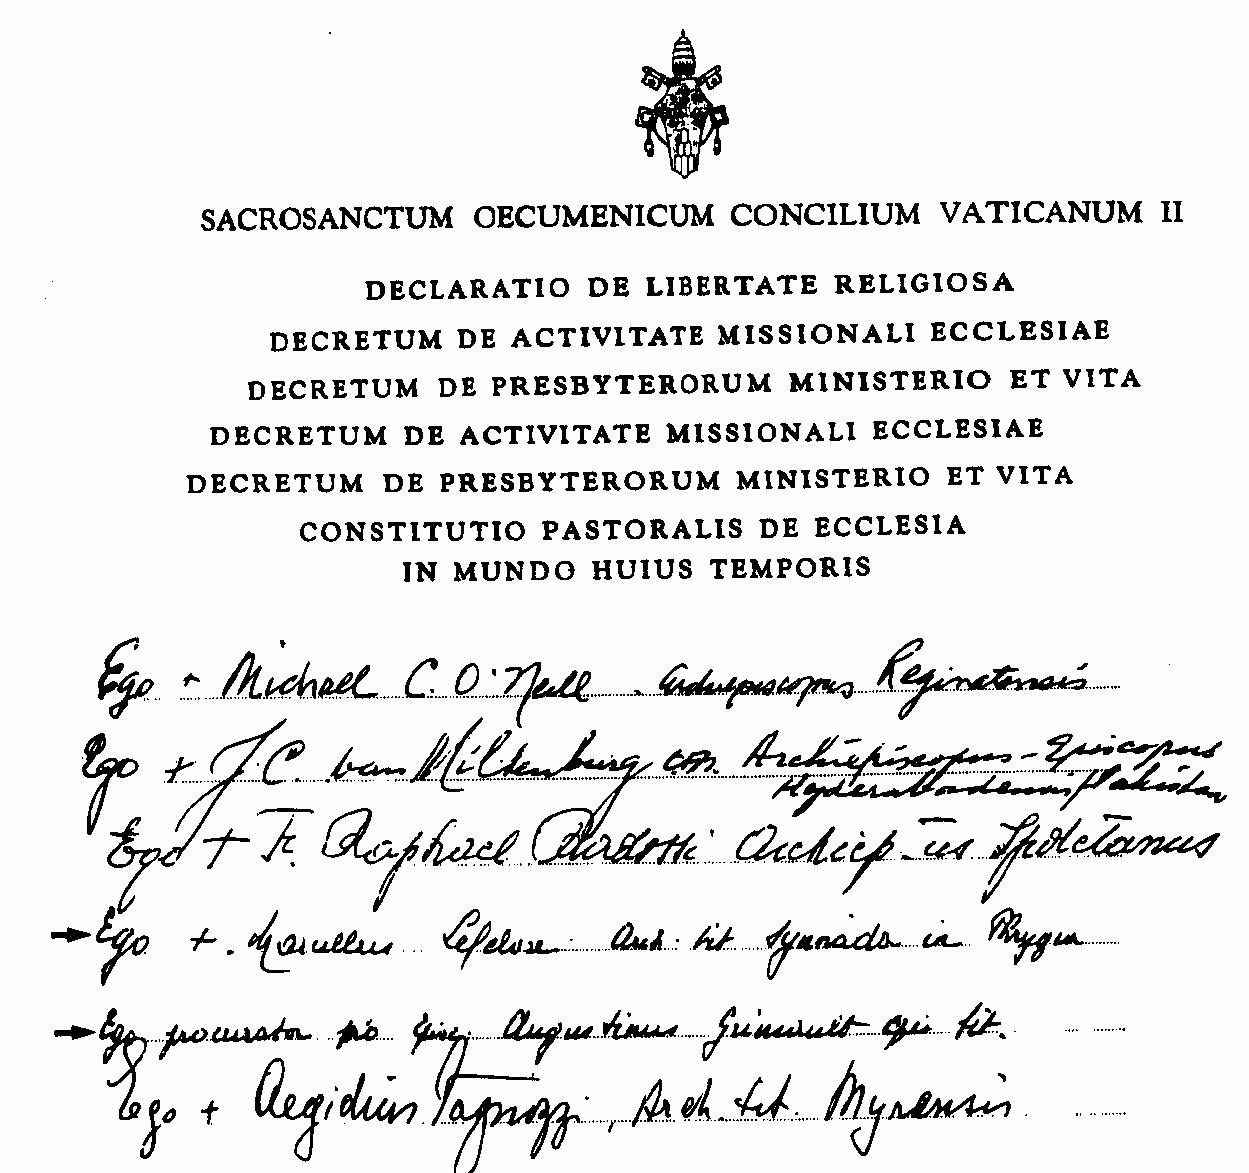 SACROSANCTUM OECUMENICUM CONCILIUM VATICANUM II
DECLARATIO DE LIBERTATE RELIGIOSA
DECRETUM DE ACTIVITATE MISSIONALI ECCLESIAE
DECRETUM DE PRESBYTERORUM MINISTERIO ET VITA
DECRETUM DE ACTIVITATE MISSIONALI ECCLESIAE
DECRETUM DE PRESBYTERORUM MINISTERIO ET VITA
CONSTITUTIO PASTORALIS DE ECCLESIA
IN MUNDO HUIUS TEMPORIS
Ego + Michael C. O'Neill Archiepiscopus Reginatensis
Ego + J. C. van Miltenburg Archiepiscopus-Episcopus
Hyderabadensis/Pakistan
Ego + Fr. Raphael Radossi Archiep-us Spoletanus
Ego + Marcellus Lefebvre Arch. tit Synnada in Phrygia
Ego procurator pro Augustinus Grimault tit.
Ego + Aegidius Tagnozzi, Arch. tit. Myrensis